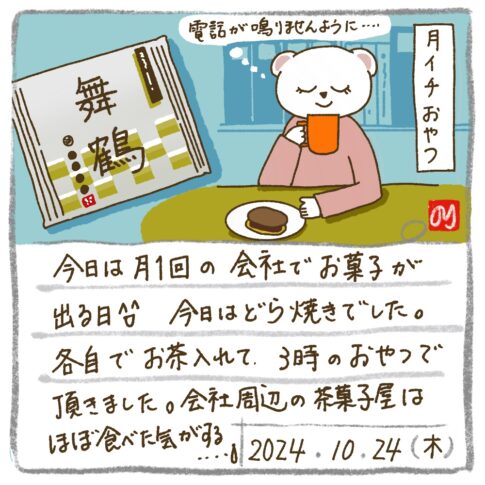 電話が鳴りませんように‥‥
月イチおやつ
舞鶴
今日は月1回の会社でお菓子が
出る日^^ 今日はどら焼きでした。
各自でお茶入れて、3時のおやつで
頂きました。会社周辺の茶菓子屋は
ほぼ食べた気がする....
2024.10.24(木)